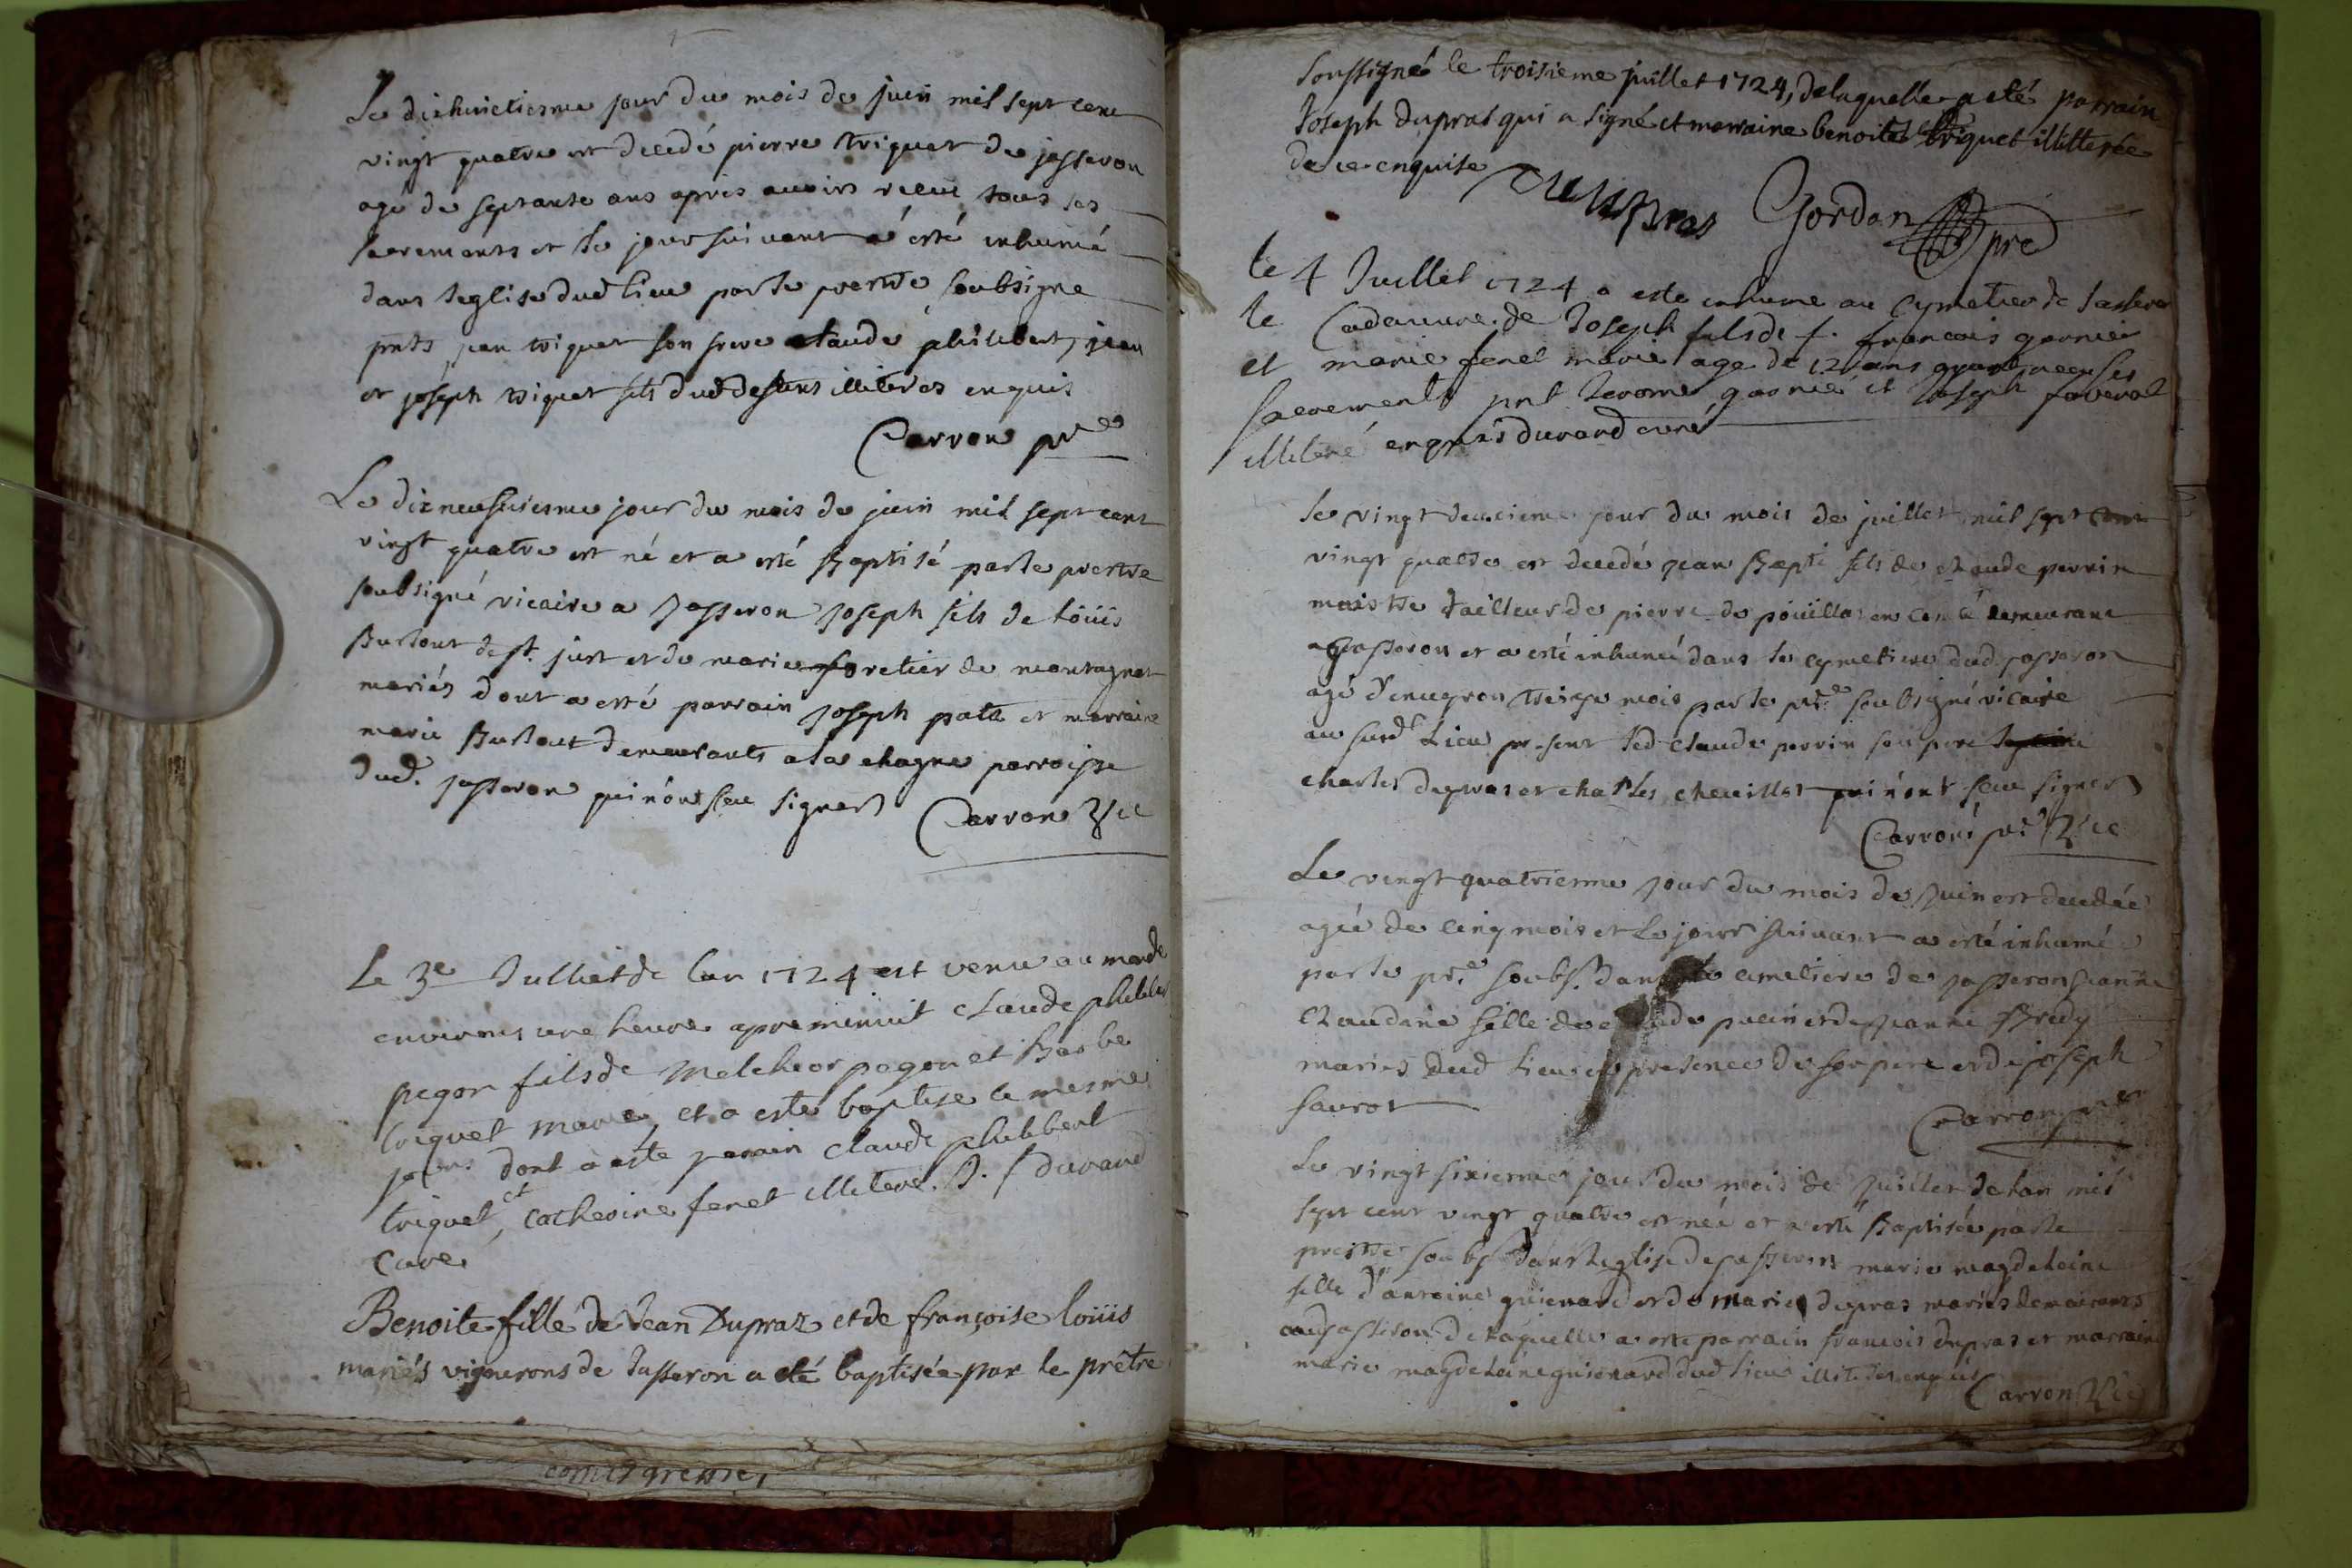 Le dixhuictiesme jour du mois de juin mil sept cent
vingt quatre est decedé pierre triquet de jasseron
agé de septante ans apres auoir receu tous ses
sacrements et le jour suivant a esté inhumé
dans leglise dud lieu par le prestre soubsigne
pnts jean triquet son frere claude philibert, jean
et joseph triquet fils dud defunt illiteres enquis
Carron pre
Le dixneufuiesme jour du mois de juin mil sept cent
vingt quatre est né et a esté Baptisé par le prestre
soubsigné vicaire a Jasseron Joseph fils de loüis
Burtout de st. just et de marie foretier de montagnat
mariés dont a esté parrain Joseph and marraine
marie Burtout demeurants a la chagne parroisse
dud. jasseron qui nont sceu signer Carron Vic
Le 3e Julliet de lan 1724 est venu au monde
environs une heure apre minuit Claude philibert
pegon fils de Melchior pegon et Barbe
triquet marie, et a este baptise le mesme
jour dont a este parain Claude philibert
triquet et, Catherine fenet illitere. J. f durand
Cure
Benoite fille de Jean Dupraz et de françoise loüis
mariés vignerons de Jasseron a eté baptisée par le prêtre
soussigné le troisieme juillet 1724, delaquelle a eté parrain
Joseph Dupras qui a signé et marraine benoite triquet illitterée
de ce enquise Dupras Gordan pre
le 4 Juillet 1724 a este inhume au Cymetier de Jasseron
le Cadauure de Joseph fils de f. francois garnier
et marie fenet marie age de 12 ans ayant receu ses
sacrements pnt Jerome garnier et Joseph faverot
illiteré enquis durand curé
Le vingt deuxieme jour du mois de juillet mil sept cent
vingt quatre est decedé jean Bapti fils de claude perrin
maistre tailleur de pierre de poüilla en demeurant
a Jasseron et a esté inhumé dans le cymetiere dud jasseron
agé d'enuyron treize mois par le pre soubsigné vicaire
au susd Lieu present led Claude perrin son pere
charles dupras et charles cheuillot qui nont sceu signer
Carron pre Vic
Le vingt quatriesme jour du mois de Juin est decedée
agée de cinq mois et le jour suiuant a esté inhumé
par le pre soubs. dans le cimetiere de jasseron jeanne
Claudine fille de claude pucin et de jeanne Bredy
maries dud Lieu en presence de son pere et de joseph
faurot
Carron pre
Le vingt sixiesme jour du mois de Juillet de lan mil
sept cent vingt quatre est née et a esté Baptisée par le
prestre soubs dans leglise de jasseron marie magdeleine
fille d'antoine guienard et de marie dupras maries demeurants
aud jasseron de laquelle a este parrain francois dupras et marraine
marie magdeleine guienard dud Lieu illiteres enquis
Carron Vic